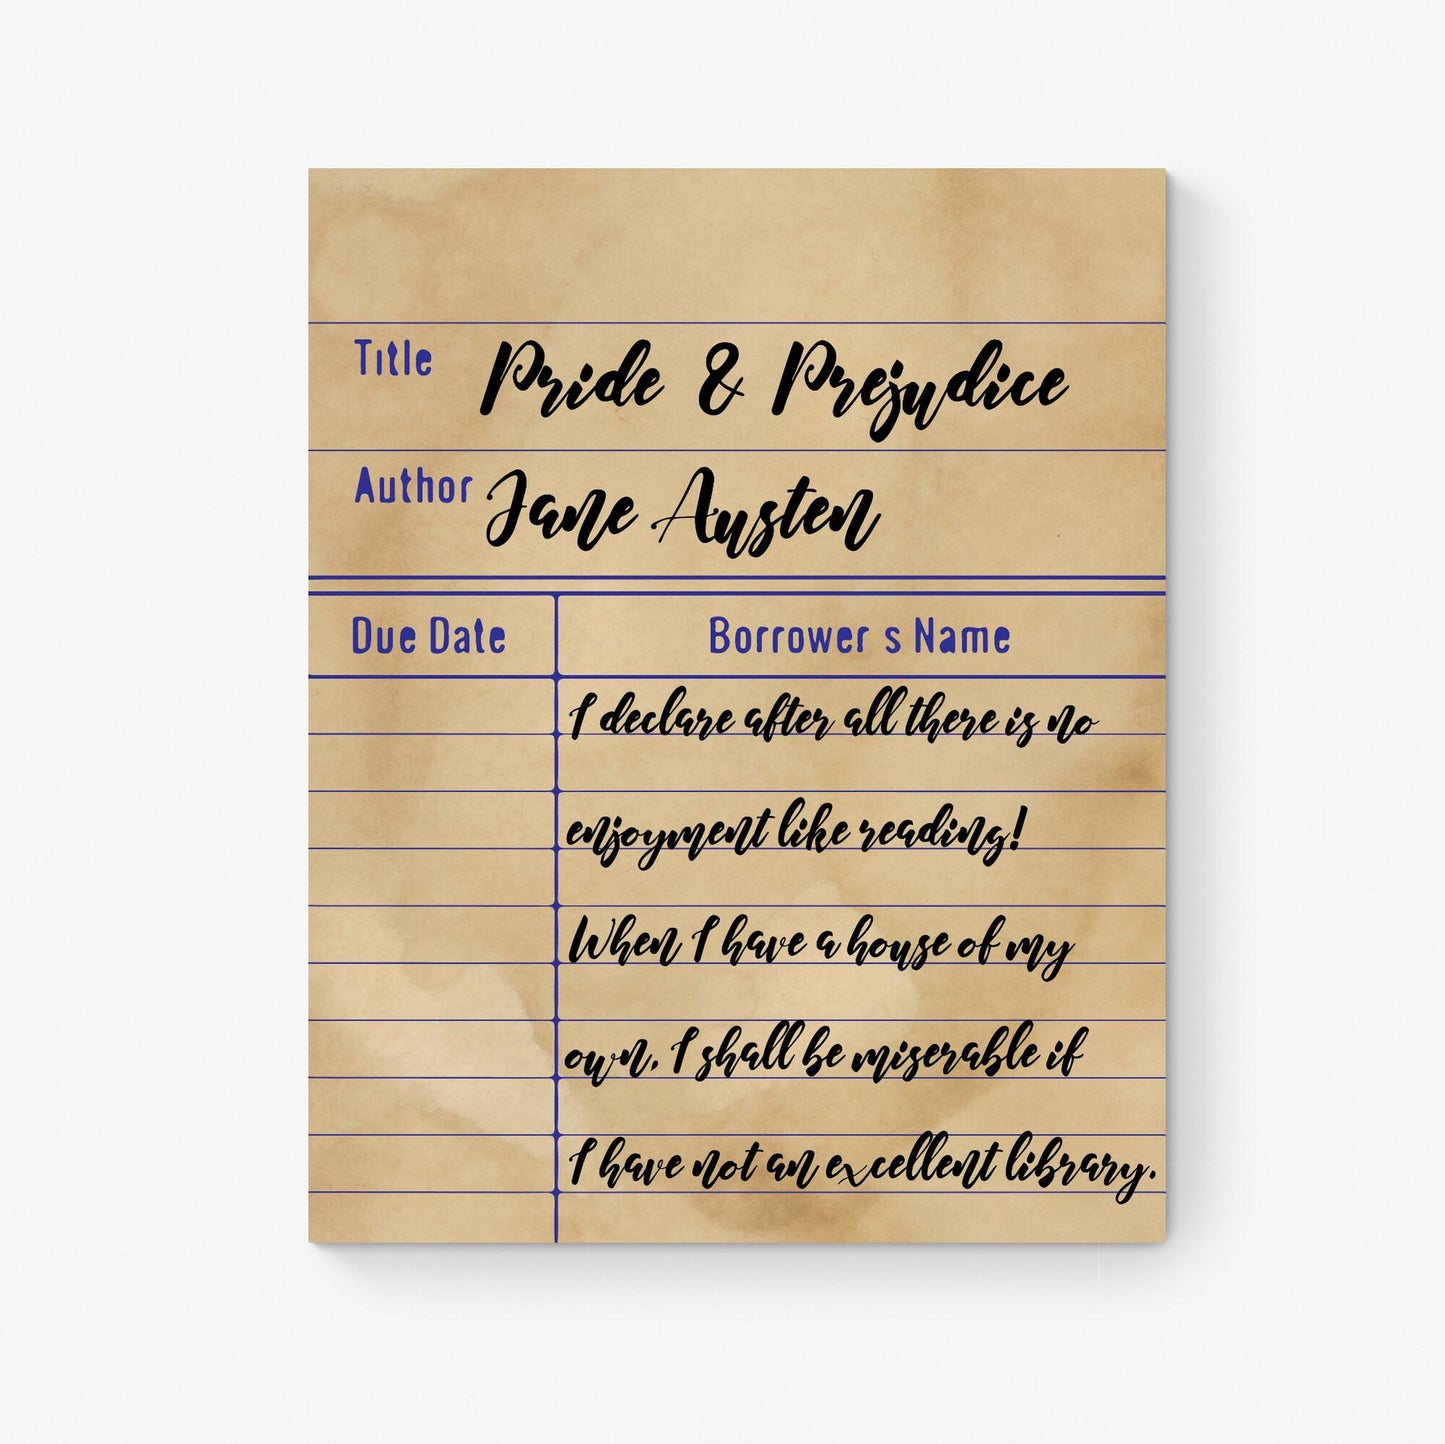 Title Pride & Prejudice
Author Jane Austen
Due Date Borrower s Name
I declare after all there is no
enjoyment like reading!
When I have a house of my
own, I shall be miserable if
I have not an excellent library.